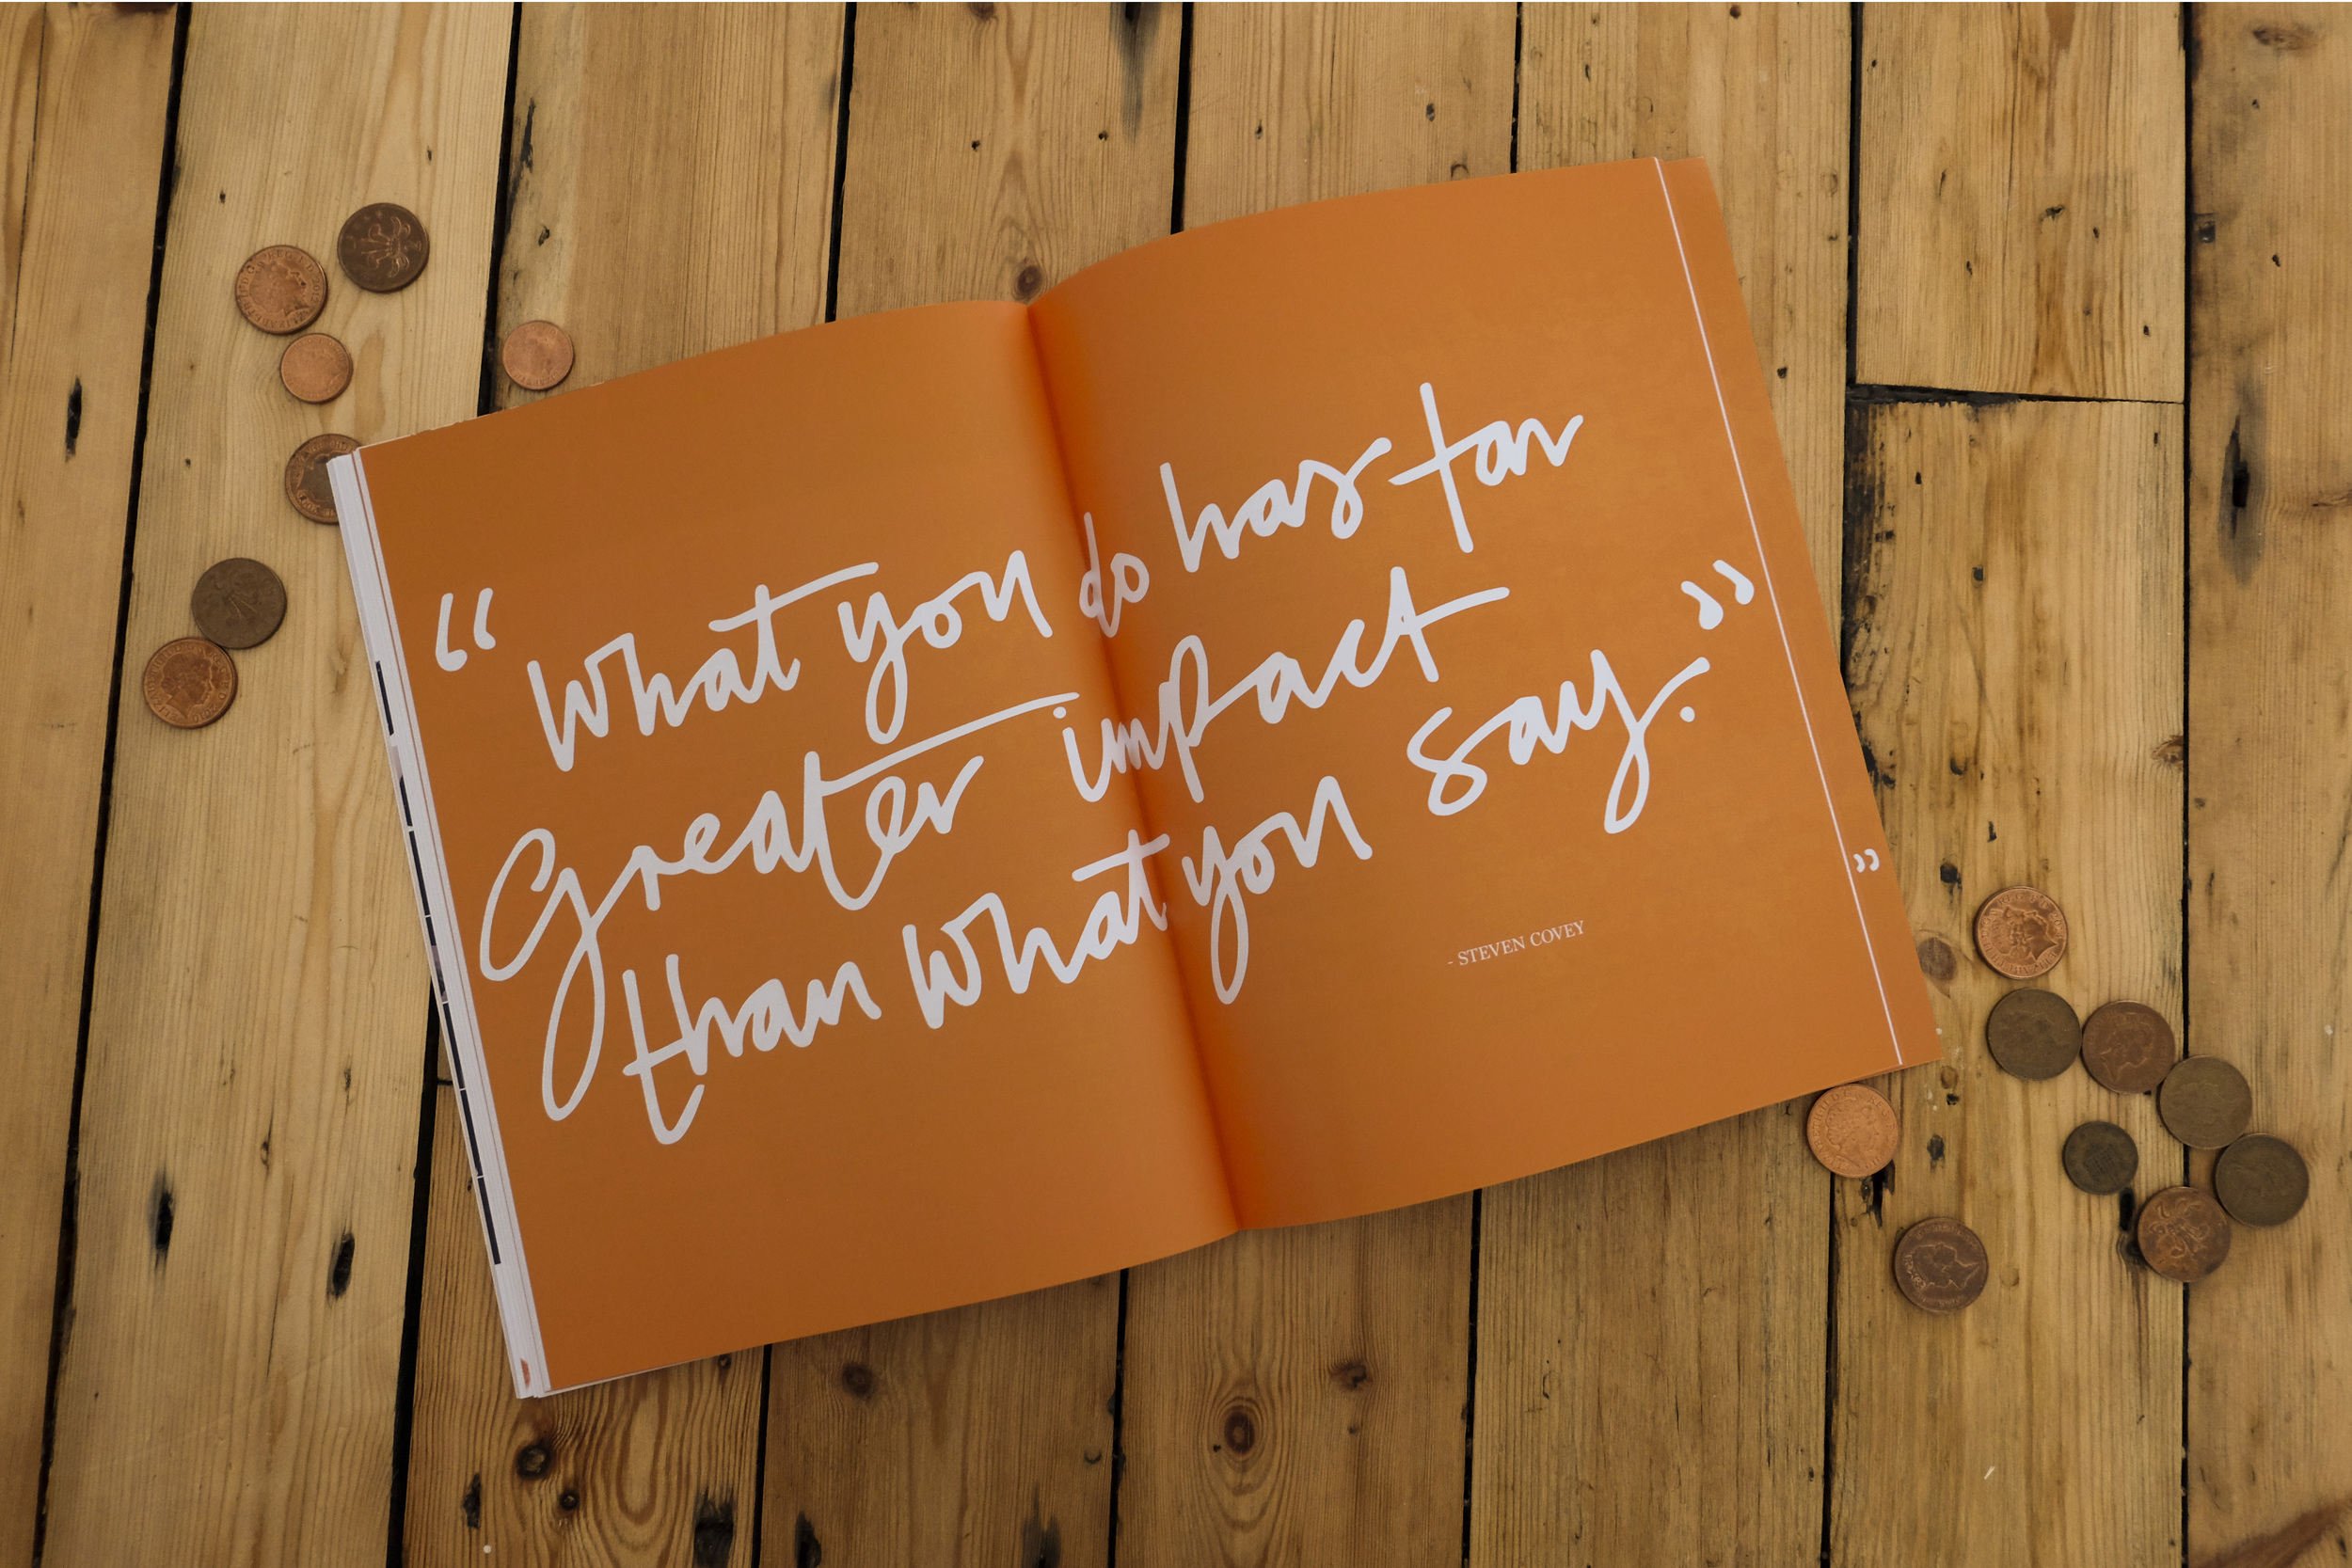 “ What you do has far
Greater impact
than what you say. ”
- STEVEN COVEY
”